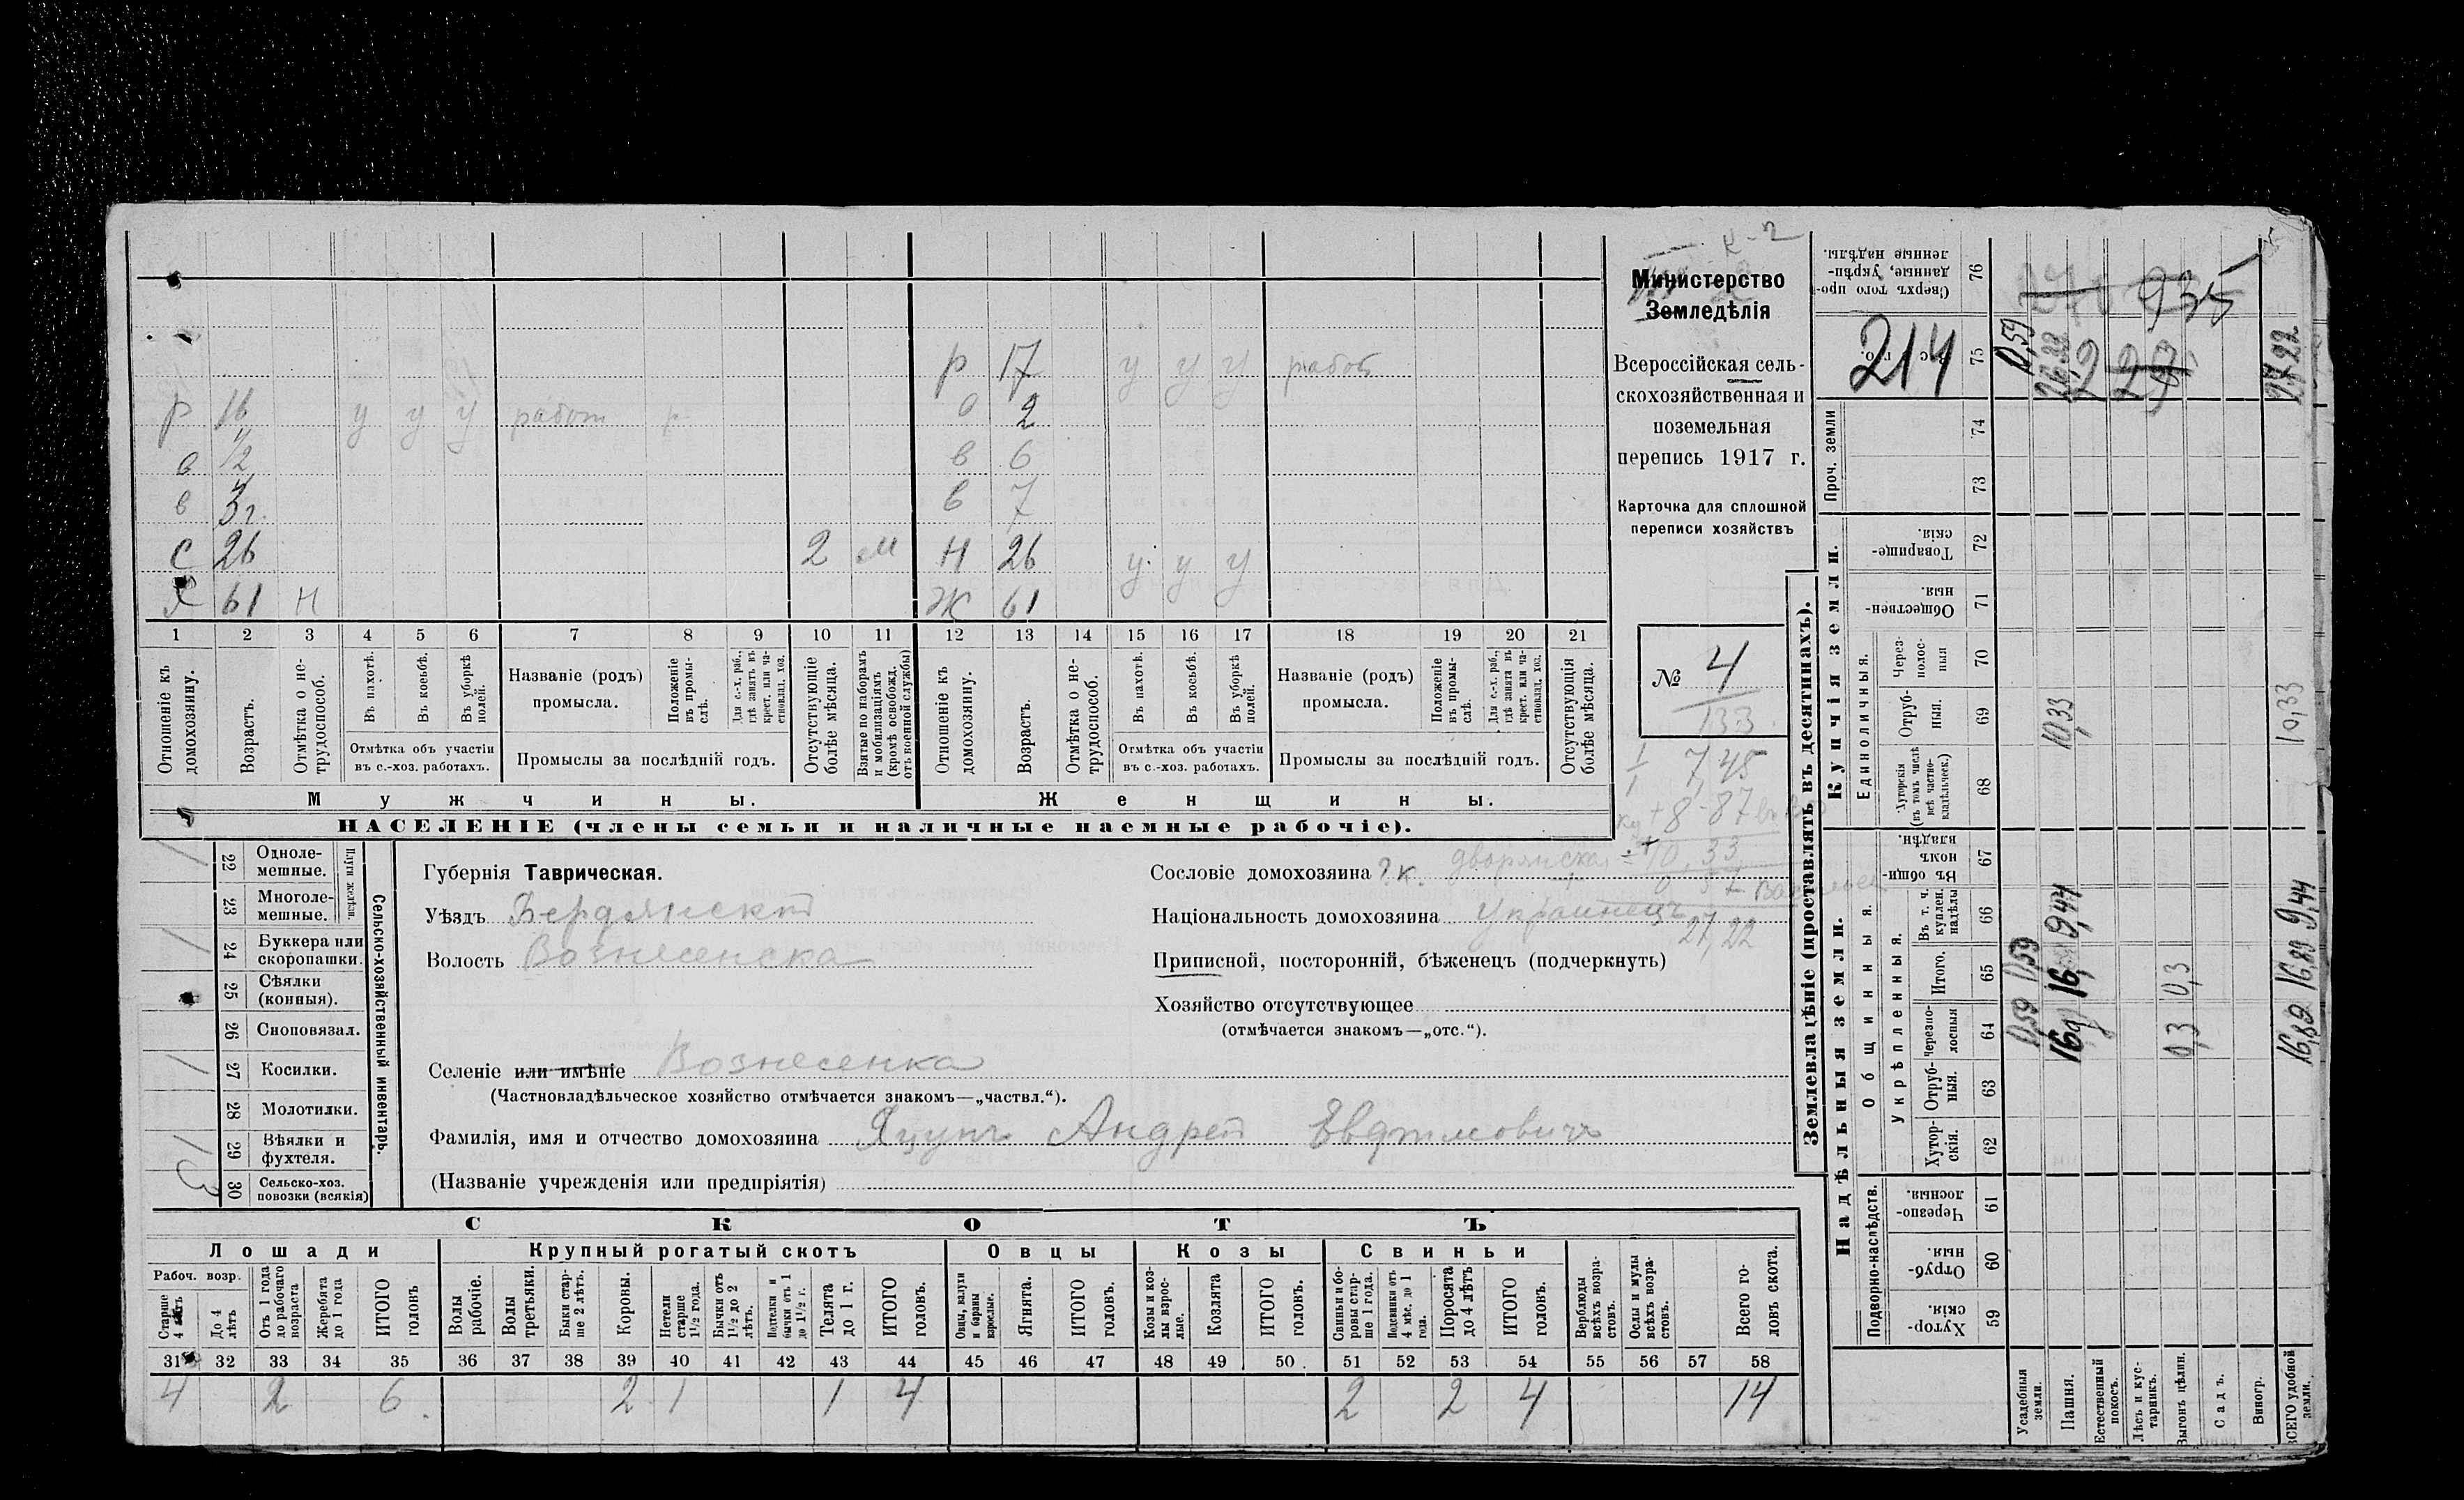 К-2
Министерство
Земледѣлія
Всероссійская сель-
скохозяйственная и
поземельная
перепись 1917 г.
Карточка для сплошной
переписи хозяйствъ
№ 4
133
7,45
+ 8-87
10,33
27,22
р 17 у у у работ
р 16 у у у работ р 0 2
в 1/2 в 6
в 3 г. в 7
с 26 2 м н 26 у у у
х 61 н ж 61
1 2 3 4 5 6 7 8 9 10 11 12 13 14 15 16 17 18 19 20 21
Отношеніе къ домохозяину.
Возрастъ.
Отмѣтка о не-трудоспособ.
Въ пахотѣ.
Въ косьбѣ.
Въ уборкѣ полей.
Отмѣтка объ участіи въ с.-хоз. работахъ.
Названіе (родъ) промысла.
Положеніе въ промы-слѣ.
Для с.-х. раб., гдѣ занятъ въ крест. или ча-стновлад. хоз.
Промыслы за послѣдній годъ.
Отсутствующіе болѣе мѣсяца.
Взятые по наборамъ и мобилизаціямъ (кромѣ освобожд. отъ военной службы)
Отношеніе къ домохозяину.
Возрастъ.
Отмѣтка о не-трудоспособ.
Въ пахотѣ.
Въ косьбѣ.
Въ уборкѣ полей.
Отмѣтка объ участіи въ с.-хоз. работахъ.
Названіе (родъ) промысла.
Положеніе въ промы-слѣ.
Для с.-х. раб., гдѣ занята въ крест. или ча-стновлад. хоз.
Промыслы за послѣдній годъ.
Отсутствующія болѣе мѣсяца.
Мужчины. Женщины.
НАСЕЛЕНІЕ (члены семьи и наличные наемные рабочіе).
Сельско-хозяйственный инвентарь.
Плуги желѣзн.
1 22 Одноле-мешные.
23 Многоле-мешные.
1 24 Буккера или скоропашки.
25 Сѣялки (конныя).
26 Сноповязал.
1 27 Косилки.
28 Молотилки.
1 29 Вѣялки и фухтеля.
3 30 Сельско-хоз. повозки (всякія)
Губернія Таврическая.
Уѣздъ Бердянскій
Волость Вознесенска
Селеніе или имѣніе Вознесенка
(Частновладѣльческое хозяйство отмѣчается знакомъ—„частвл.“).
Фамилія, имя и отчество домохозяина Яцунъ Андрей Евфимовичъ
(Названіе учрежденія или предпріятія)
Сословіе домохозяина ?к. дворянская
Національность домохозяина Украинецъ
Приписной, посторонній, бѣженецъ (подчеркнуть)
Хозяйство отсутствующее
(отмѣчается знакомъ—„отс.“).
СКОТЪ
Лошади Крупный рогатый скотъ Овцы Козы Свиньи
Рабоч. возр.
Старше 4 лѣтъ
До 4 лѣтъ
Отъ 1 года до рабочаго возраста
Жеребята до 1 года
ИТОГО головъ
Волы рабочіе.
Волы третьяки.
Быки стар-ше 2 лѣтъ.
Коровы.
Нетели старше 1½ года.
Бычки отъ 1½ до 2 лѣтъ.
Подтелки и бычки отъ 1 до 1½ г.
Телята до 1 г.
ИТОГО головъ.
Овцы, валухи и бараны взрослые.
Ягнята.
ИТОГО головъ.
Козы и коз-лы взрос-лые.
Козлята
ИТОГО головъ.
Свиньи и бо-ровы стар-ше 1 года.
Подсвинки отъ 4 мѣс. до 1 года.
Поросята до 4 лѣтъ
ИТОГО головъ.
Верблюды всѣхъ возра-стовъ.
Ослы и мулы всѣхъ возра-стовъ.
Всего го-ловъ скота.
31 32 33 34 35 36 37 38 39 40 41 42 43 44 45 46 47 48 49 50 51 52 53 54 55 56 57 58
4 2 6 2 1 1 4 2 2 4 14
Землевладѣніе (проставлять въ десятинахъ).
Надѣльныя земли. Купчія земли. Проч. земли
Подворно-наслѣдств. Общинныя. Укрѣпленныя. Единоличныя.
Хутор-скія. 59
Отруб-ныя. 60
Черезпо-лосныя. 61
Хутор-скія. 62
Отруб-ныя. 63
Черезпо-лосныя 64
Итого. 65
Въ т. ч. куплен. надѣлы 66
Въ общин-номъ владѣн. 67
Хуторскія (въ томъ числѣ всѣ частно-владѣльческ.) 68
Отруб-ныя. 69
Через-полос-ныя 70
Обществен-ныя. 71
Товарище-скія. 72
73
74
75
Сверхъ того про-данные, укрѣп-ленные надѣлы. 76
214
935
Усадебныя земли. 0,59 0,59 0,59
Пашня. 9,44 10,33
Естественный покосъ.
Лѣсъ и кус-тарникъ.
Выгонъ цѣлин. 0,3 0,3
Садъ.
Виногр.
ВСЕГО удобной земли. 16,89 16,89 9,44 10,33 27,22